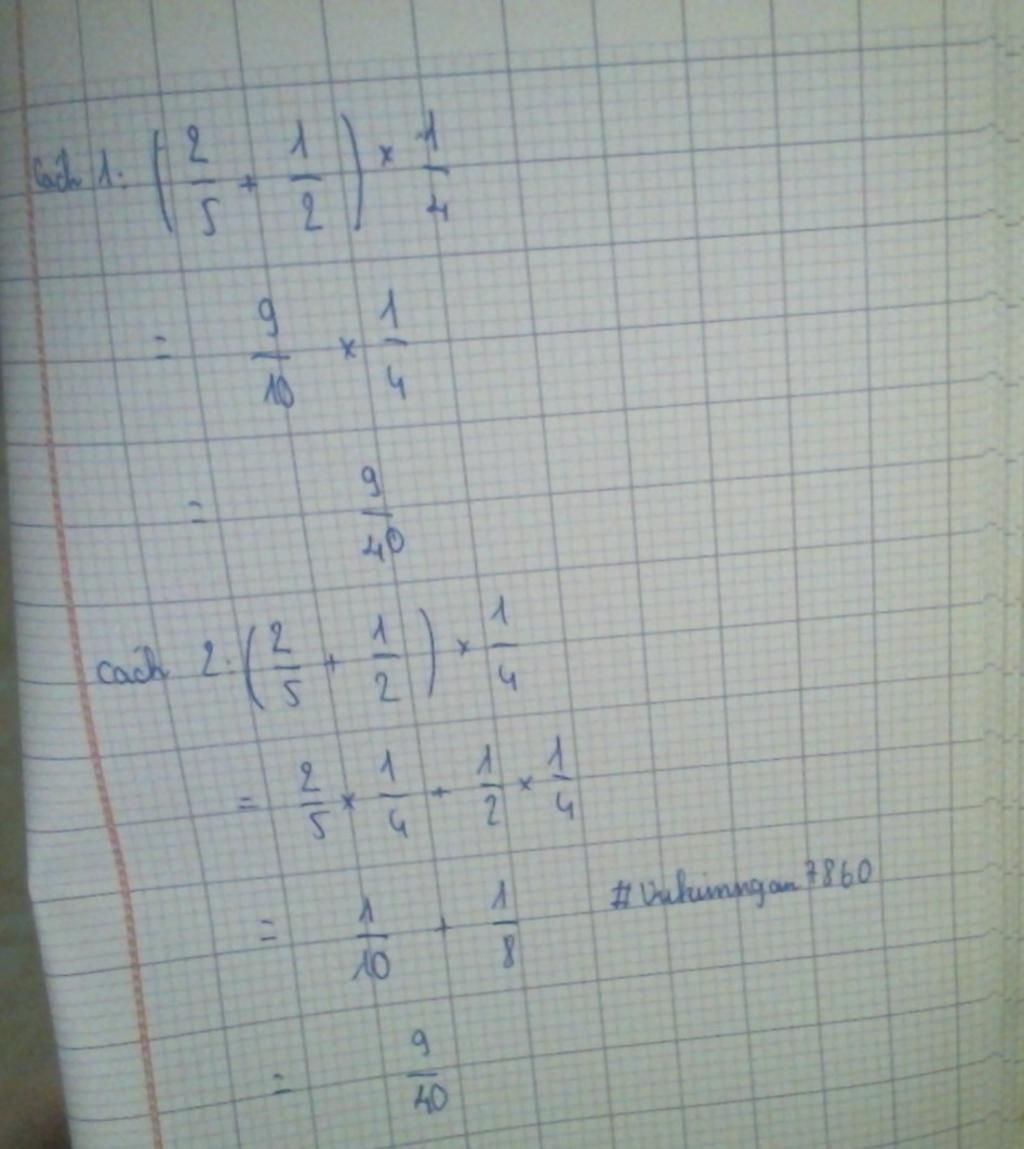 Cách 1: (2/5 + 1/2) × 1/4
= 9/10 × 1/4
= 9/40
Cách 2: (2/5 + 1/2) × 1/4
= 2/5 × 1/4 + 1/2 × 1/4
= 1/10 + 1/8
#Vukimngan7860
= 9/40